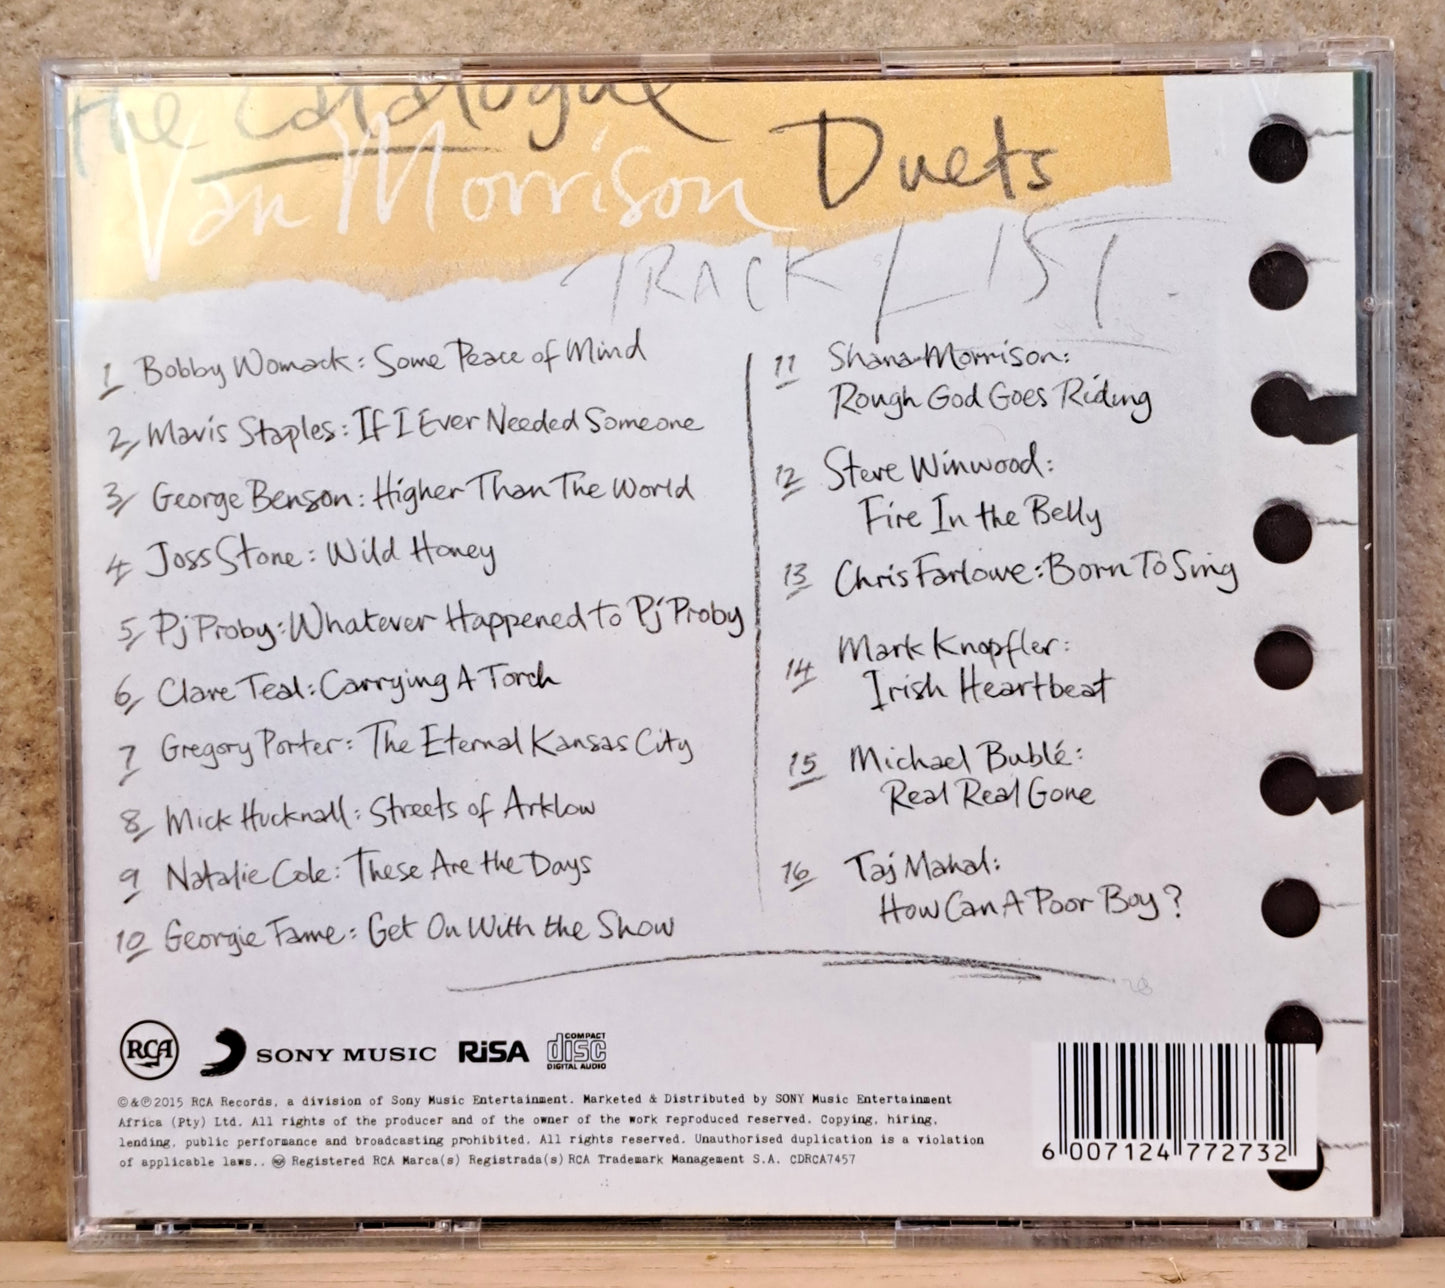 the Catalogue
Van Morrison Duets
TRACK LIST.
1 Bobby Womack: Some Peace of Mind
2 Mavis Staples: If I Ever Needed Someone
3 George Benson: Higher Than The World
4 Joss Stone: Wild Honey
5 Pj Proby: Whatever Happened to Pj Proby
6 Clare Teal: Carrying A Torch
7 Gregory Porter: The Eternal Kansas City
8 Mick Hucknall: Streets of Arklow
9 Natalie Cole: These Are the Days
10 Georgie Fame: Get On With the Show
11 Shana Morrison:
Rough God Goes Riding
12 Steve Winwood:
Fire In the Belly
13 Chris Farlowe: Born To Sing
14 Mark Knopfler:
Irish Heartbeat
15 Michael Bublé:
Real Real Gone
16 Taj Mahal:
How Can A Poor Boy?
RCA SONY MUSIC RiSA COMPACT disc DIGITAL AUDIO
©&℗2015 RCA Records, a division of Sony Music Entertainment. Marketed & Distributed by SONY Music Entertainment
Africa (Pty) Ltd. All rights of the producer and of the owner of the work reproduced reserved. Copying, hiring,
lending, public performance and broadcasting prohibited. All rights reserved. Unauthorised duplication is a violation
of applicable laws.. Registered RCA Marca(s) Registrada(s) RCA Trademark Management S.A. CDRCA7457
6 007124 772732